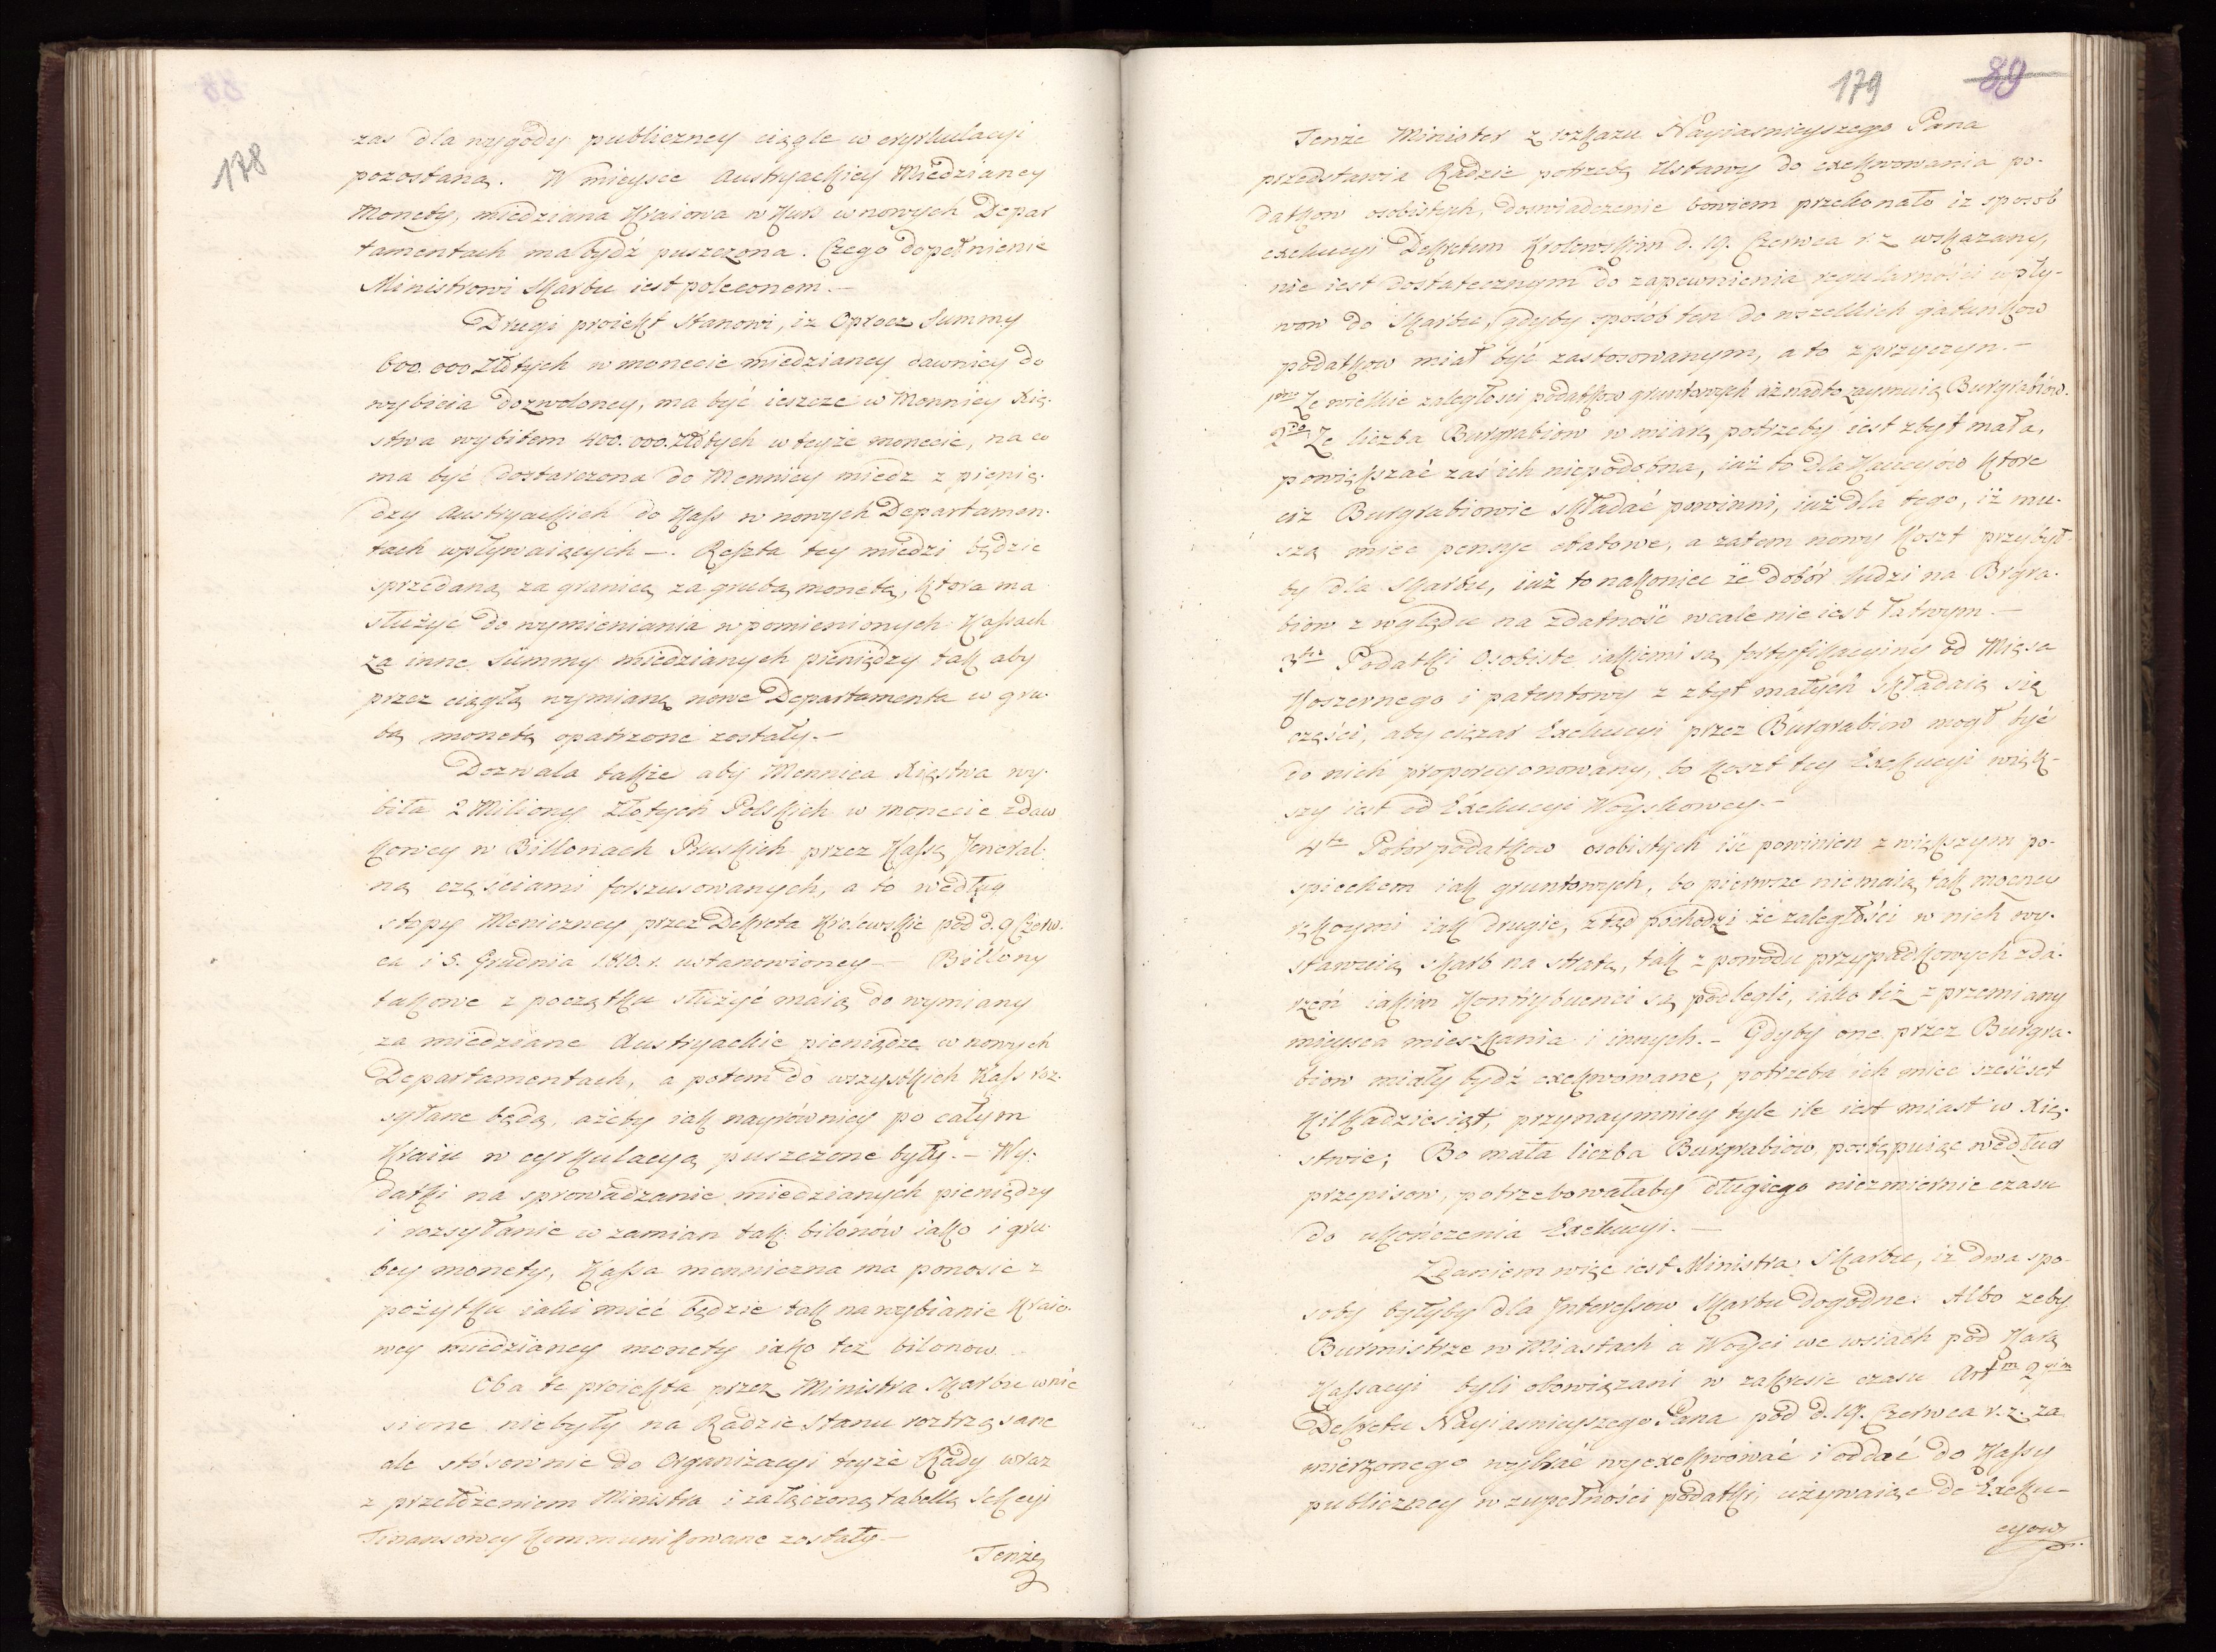 178
zas dla wygody publiczney ciągle w cyrkulacyi
pozostaną. W mieysce Austryackiey Miedzianey
Monety, miedziana Kraiowa w Kurs w nowych Depar
tamentach ma bydź puszczona. Czego dopełnienie
Ministrowi Skarbu iest poleconem.—
Drugi proiekt stanowi, iz Oprocz Summy
600.000 Złłtych w monecie miedzianey dawniey do
wybicia dozwoloney, ma być ieszcze w Menniey Xię-
stwa wybitem 400.000. Złłtych w teyże monecie, na co
ma być dostarczona do Mennicy miedz z pienię-
dzy Austryackich do Kass w nowych Departamen-
tach wpływaiących —. Reszta tey miedzi będzie
sprzedaną za granicą za grubą monetę, ktora ma
służyć do wymieniania w pomienionych Kassach
za inne Summy miedzianych pieniędzy tak aby
przez ciągłą wymianę nowe Departamenta w gru-
bą monetę opatrzone zostały.—
Dozwala także aby Mennica Xięstwa wy-
biła 2 Miliony Złotych Polskich w monecie zdaw
kowey w Billonach Pruskich przez Kassę Jeneral-
ną częściami forszusowanych, a to według
stopy Meniczney przez Dekreta Krolewskie pod d. 9 Czerw-
ca i 5. Grudnia 1810. r. ustanowioney— Billony
takowe z początku służyć maią do wymiany
za miedziane Austryackie pieniądze w nowych
Departamentach, a potem do wszystkich Kass roz-
syłane będą, ażeby iak nayrówniey po całym
Kraiu w cyrkulacyą puszczone były.— Wy-
datki na sprowadzanie miedzianych pieniędzy
i rozsyłanie w zamian tak bilonów iako i gru-
bey monety, Kassa menniczna ma ponosić z
pożytku iaki mieć będzie tak na wybianie Kraio-
wey miedzianey monety iako też bilonow.
Oba te proiekta przez Ministra Skarbu wnie
sione niebyły na Radzie Stanu roztrząsane
ale stósownie do Organizacyi teyże Rady wraz
z przełożeniem Ministra i załączoną tabellą Sekcyi
Finansowey Kommunikowane zostały—
Tenże
179
89
Tenże Minister z rozkazu Nayiasnieyszego Pana
przedstawia Radzie potrzebę Ustawy do exekwowania po-
datkow osobistych, doswiadczenie bowiem przekonało iz sposob
exekucyi Dekretem Krolewskim d. 19. Czerwca r. z wskazany,
nie iest dostatecznym do zapewnienia regularności wpły-
wow do Skarbu, gdyby sposób ten do wszelkich gatunkow
podatkow miał być zastosowanym, a to z przyczyn.—
1mo Ze wielkie zaległosci podatkow gruntowych aż nadto zaymuią Burgrabiów.
2do Ze liczba Burgrabiow w miarę potrzeby iest zbyt mała,
powiększać zaś ich niepodobna, iuż to dla Kaucyów ktore
ciż Burgrabiowie składać powinni, iuż dla tego, iż mu-
szą miec pensye etatowe, a zatem nowy Koszt przybył-
by dla Skarbu, iuż to nakoniec że dobór ludzi na Brgra-
biow z względu na zdatność wcale nie iest łatwym.—
3tio Podatki Osobiste iakiemi są fortyfikacyiny od Mięsa
Koszernego i patentowy z zbyt małych składaią się
części, aby ciężar Exekucyi przez Burgrabiow mogł być
do nich proporcyonowany, bo koszt tey Exekucyi więk-
szy iest od Exekucyi Woyskowey.—
4to Pobor podatkow osobistych iść powinien z większym po-
spiechem iak gruntowych, bo pierwsze niemaią tak mocney
rękoymi iak drugie, ztąd pochodzi że zaległości w nich wy-
stawuią skarb na stratę, tak z powodu przypadkowych zda-
rzeń iakim Kontrybuenci są podlegli, iako też z przemiany
mieysca mieszkania i innych.— Gdyby one przez Burgra-
biow miały bydź exekwowane, potrzeba ich miec sześcset
Kilkadziesiąt, przynaymniey tyle ile iest miast w Xię-
stwie; Bo mała liczba Burgrabiow, postępuiąc według
przepisow, potrzebowałaby długiego niezmiernie czasu
do ukończenia Exekucyi.—
Zdaniem więc iest Ministra Skarbu, iż dwa spo-
soby byłyby dla Interessow Skarbu dogodne: Albo żeby
Burmistrze w Miastach a Woyci we wsiach pod Karą
Kassacyi byli obowiązani w zakresie czasu Artm 2gim
Dekretu Nayiasnieyszego Pana pod d. 19. Czerwca r. z. za
mierzonego wybrać wyexekwować i oddać do Kassy
publiczney w zupełności podatki, używaiąc do Exeku-
cyow